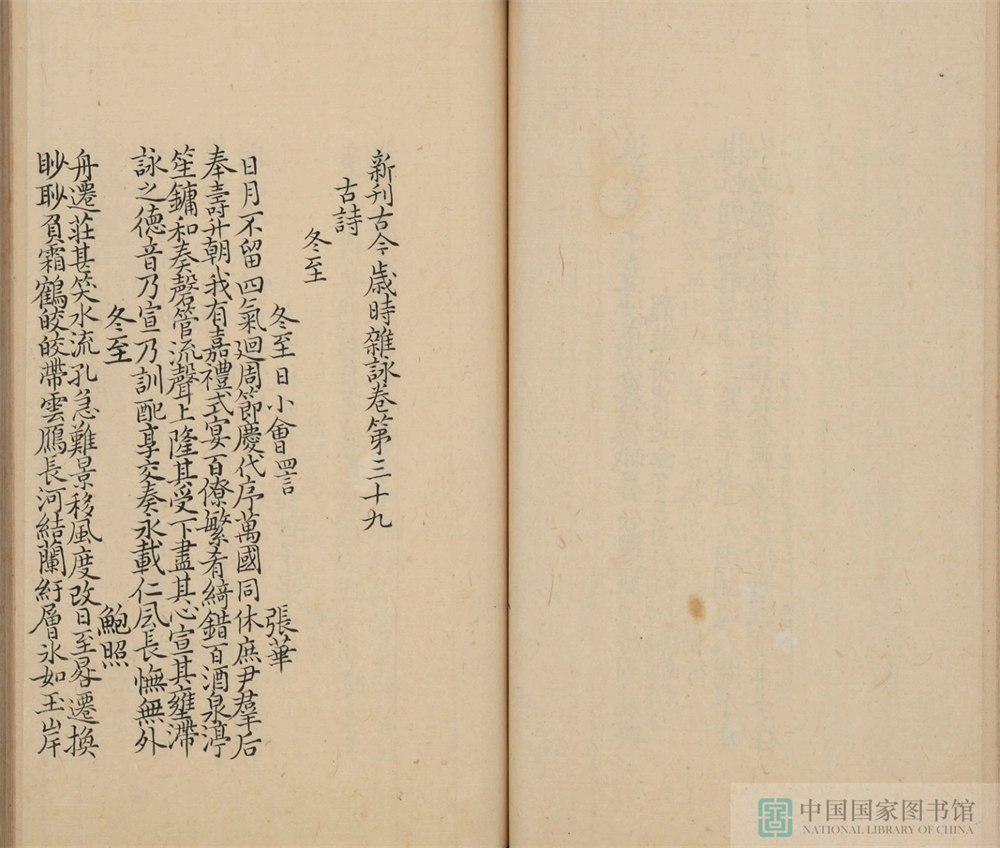 新刊古今歲時雜詠卷第三十九
古詩
冬至
冬至日小會四言 張華
日月不留四氣迴周節慶代序萬國同休庶尹羣后
奉壽升朝我有嘉禮式宴百僚繁肴綺錯百酒泉渟
笙鏞和奏磬管流聲上隆其受下盡其心宣其壅滯
詠之德音乃宣乃訓配享交奏永載仁風長憮無外
冬至 鮑照
舟遷莊甚笑水流孔急難景移風度改日至晷遷換
眇眇負霜鶴皎皎帶雲鴈長河結蘭紆層冰如玉岸
中国国家图书馆
NATIONAL LIBRARY OF CHINA